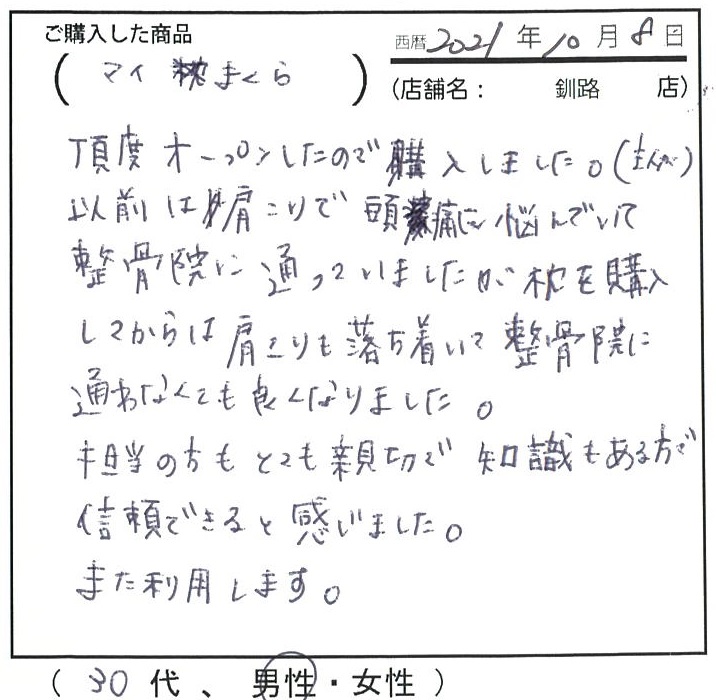 ご購入した商品
西暦2021年10月8日
(マイ枕まくら)
(店舗名: 釧路 店)
丁頁度オープンしたので購入しました。(主人が)
以前は肩こりで頭痛に悩んでいて
整骨院に通っていましたが枕を購入
してからは肩こりも落ち着いて整骨院に
通わなくても良くなりました。
担当の方もとても親切で知識もある方で
信頼できると感じました。
また利用します。
(30代、男性・女性)